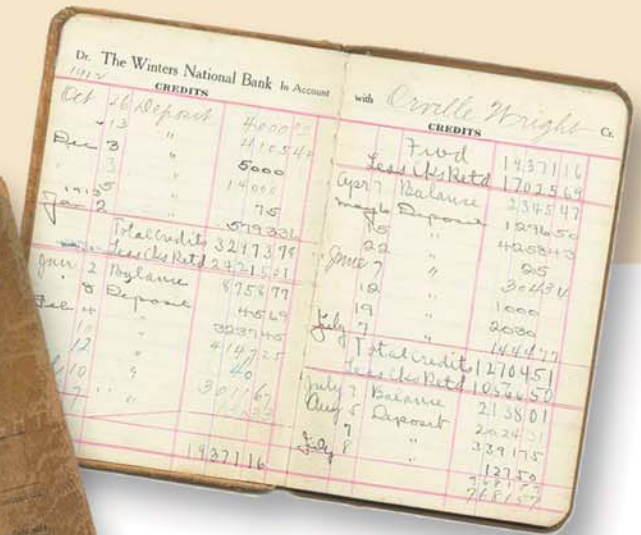 Dr. The Winters National Bank In Account
1912
CREDITS
Oct 26 Deposit 4000 00
" 13 " 4105 44
Dec 3 " 5000
3 " 14000
1913 5 " 75
Jan 2 5793 36
Total Credits 32173 78
Less Cks Retd 24215 01
Jan 2 Balance 8758 77
8 Deposit 45 69
Feb 4 " 3237 45
10 " 4147 25
12 " 40
10 " 3011 67
7 "
19371 16
with Orville Wright Cr.
CREDITS
Fwd 19371 16
Less Cks Retd 17025 69
Apr 7 Balance 2345 47
May 6 Deposit 1296 50
15 " 4258 43
22 " 25
June 7 " 304 34
12 " 1000
19 " 2030
July 7 1444 77
Total Credits 12704 51
Less Cks Retd 10566 50
July 7 Balance 2138 01
Aug 5 Deposit 2024 31
7 " 3391 75
July 8 " 127 50
7681 57